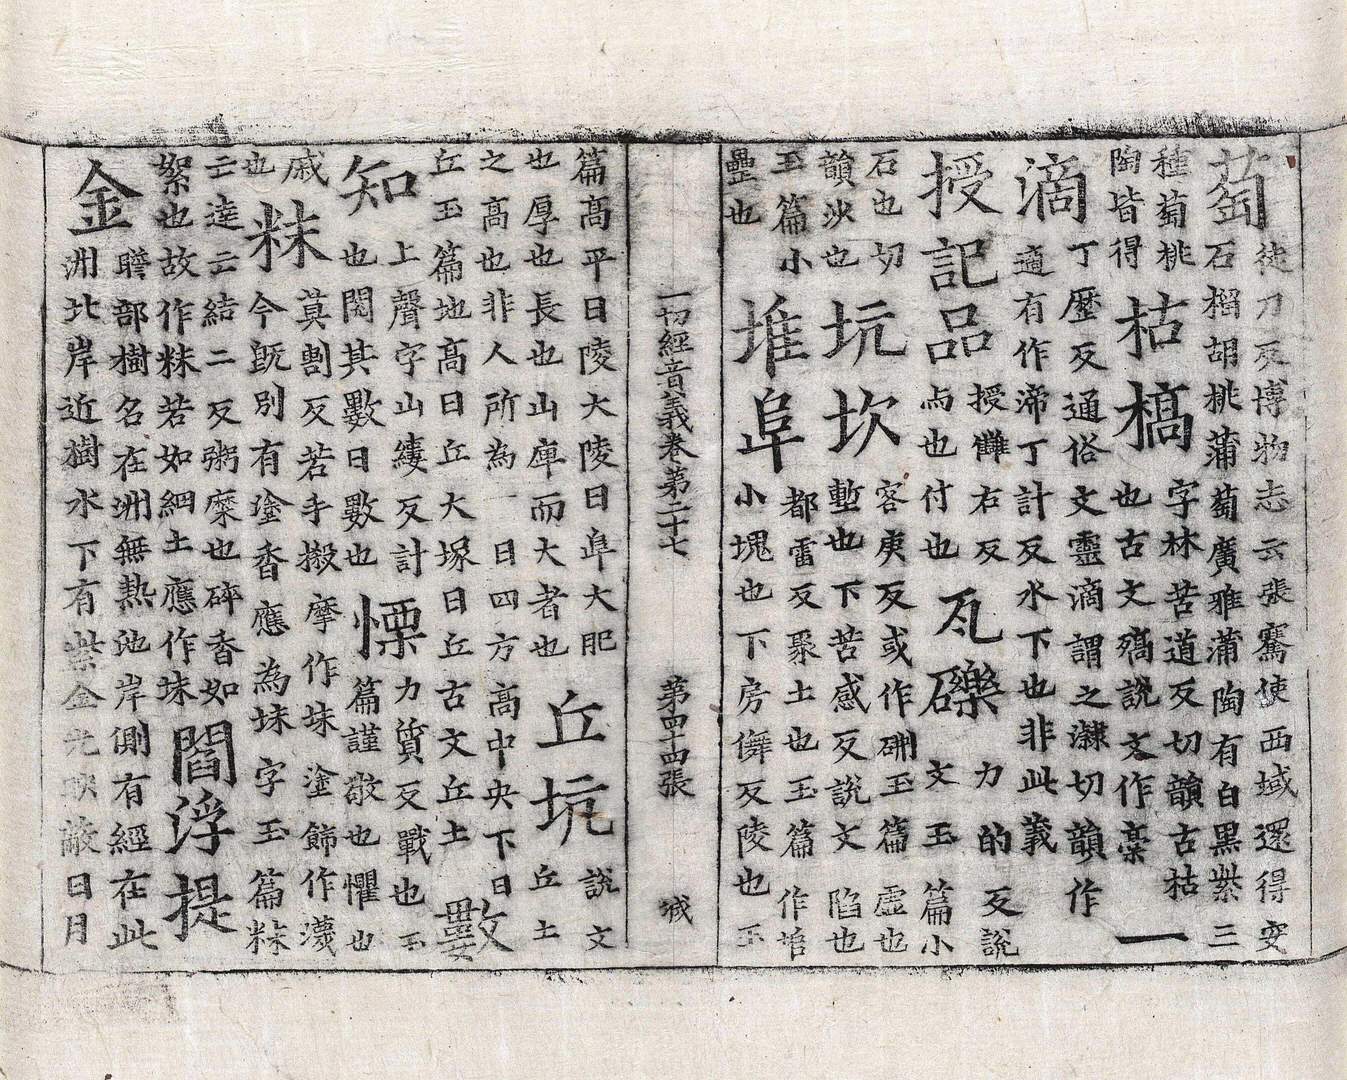 萄
徒刀反博物志云張騫使西域還得安
石榴胡桃蒲萄廣雅蒲陶有白黑紫三
種萄桃
陶皆得
枯槁
字林苦道反切韻古枯
也古文殦說文作槀
一
滴
丁歷反通俗文靈滴謂之切韻作
適有作渧丁計反水下也非此義
授記品
授讎右反
也付也
瓦礫
力的反說
文玉篇小
石也切
韻沙也
坑坎
客庚反或作硎玉篇虛也
塹也下苦感反說文陷也
玉篇小
壘也
堆阜
都雷反聚土也玉篇作塠
小塊也下房反陵也玉
一切經音義卷第二十七 第四十四張 城
篇高平曰陵大陵曰阜大肥
也厚也長也山庳而大者也
丘坑
說文
丘土
之高也非人所為 曰四方高中央下曰
丘玉篇地高曰丘大塚曰丘古文丘土
數
知
上聲字山縷反計
也閱其數曰數也
慄
力質反戰也玉
篇謹敬也懼也
戚
也
粖
莫割反若手摩作抹塗飾作
今既別有塗香應為抹字玉篇粖
亡達云結二反粥糜也碎香如
絮也故作粖若如細土應作抹
閻浮提
金
贍部樹名在洲無熱池岸側有經在此
洲北岸近樹水下有紫金光映蔽日月